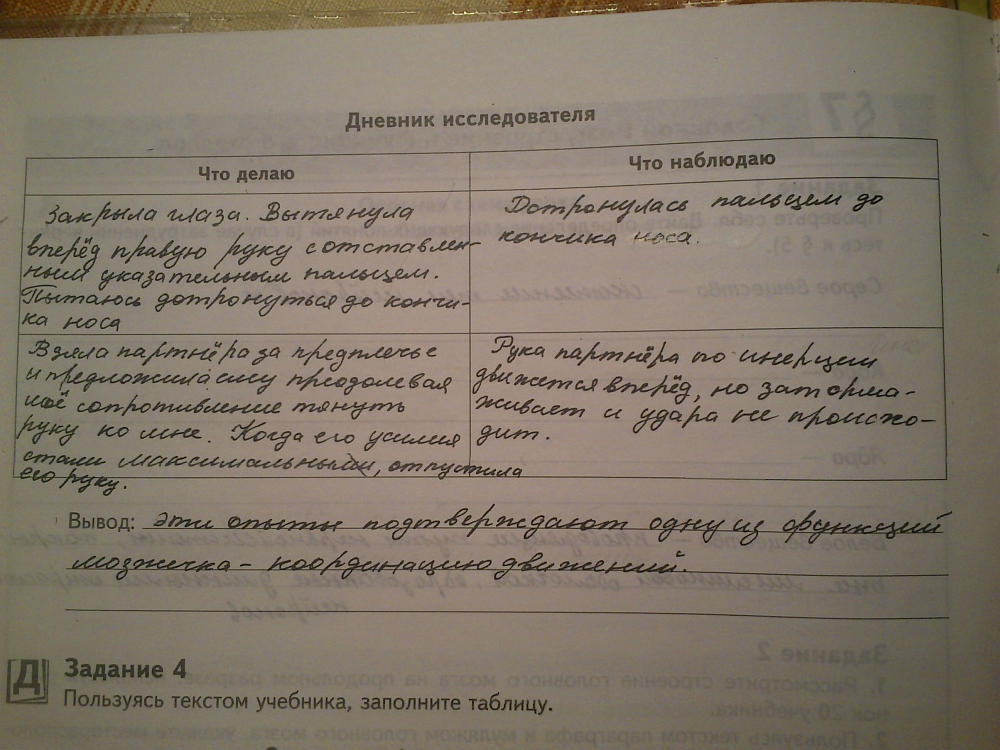 Дневник исследователя
Что делаю
Что наблюдаю
Закрыла глаза. Вытянула
вперёд правую руку с отставлен-
ным указательным пальцем.
Пытаюсь дотронуться до кончи-
ка носа
Дотронулась пальцем до
кончика носа.
Взяла партнёра за предплечье
и предложила ему преодолевая
моё сопротивление тянуть
руку ко мне. Когда его усилия
стали максимальными, отпустила
его руку.
Рука партнёра по инерции
движется вперёд, но заторма-
живает и удара не происхо-
дит.
Вывод: эти опыты подтверждают одну из функций
мозжечка - координацию движений.
Д
Задание 4
Пользуясь текстом учебника, заполните таблицу.